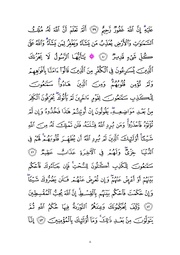 عَلَيْهِ إِنَّ ٱللَّهَ غَفُورٌ رَّحِيمٌ ﴿٣٩﴾ أَلَمْ تَعْلَمْ أَنَّ ٱللَّهَ لَهُۥ مُلْكُ
ٱلسَّمَٰوَٰتِ وَٱلْأَرْضِ يُعَذِّبُ مَن يَشَآءُ وَيَغْفِرُ لِمَن يَشَآءُ وَٱللَّهُ عَلَىٰ
كُلِّ شَىْءٍ قَدِيرٌ ﴿٤٠﴾ يَٰٓأَيُّهَا ٱلرَّسُولُ لَا يَحْزُنكَ
ٱلَّذِينَ يُسَٰرِعُونَ فِى ٱلْكُفْرِ مِنَ ٱلَّذِينَ قَالُوٓا۟ ءَامَنَّا بِأَفْوَٰهِهِمْ
وَلَمْ تُؤْمِن قُلُوبُهُمْ وَمِنَ ٱلَّذِينَ هَادُوا۟ سَمَّٰعُونَ
لِلْكَذِبِ سَمَّٰعُونَ لِقَوْمٍ ءَاخَرِينَ لَمْ يَأْتُوكَ يُحَرِّفُونَ ٱلْكَلِمَ
مِنۢ بَعْدِ مَوَاضِعِهِۦ يَقُولُونَ إِنْ أُوتِيتُمْ هَٰذَا فَخُذُوهُ وَإِن لَّمْ
تُؤْتَوْهُ فَٱحْذَرُوا۟ وَمَن يُرِدِ ٱللَّهُ فِتْنَتَهُۥ فَلَن تَمْلِكَ لَهُۥ مِنَ ٱللَّهِ
شَيْـًٔا أُو۟لَٰٓئِكَ ٱلَّذِينَ لَمْ يُرِدِ ٱللَّهُ أَن يُطَهِّرَ قُلُوبَهُمْ لَهُمْ فِى
ٱلدُّنْيَا خِزْىٌ وَلَهُمْ فِى ٱلْءَاخِرَةِ عَذَابٌ عَظِيمٌ ﴿٤١﴾
سَمَّٰعُونَ لِلْكَذِبِ أَكَّٰلُونَ لِلسُّحْتِ فَإِن جَآءُوكَ فَٱحْكُم
بَيْنَهُمْ أَوْ أَعْرِضْ عَنْهُمْ وَإِن تُعْرِضْ عَنْهُمْ فَلَن يَضُرُّوكَ شَيْـًٔا
وَإِنْ حَكَمْتَ فَٱحْكُم بَيْنَهُم بِٱلْقِسْطِ إِنَّ ٱللَّهَ يُحِبُّ ٱلْمُقْسِطِينَ
﴿٤٢﴾ وَكَيْفَ يُحَكِّمُونَكَ وَعِندَهُمُ ٱلتَّوْرَىٰةُ فِيهَا حُكْمُ ٱللَّهِ ثُمَّ
يَتَوَلَّوْنَ مِنۢ بَعْدِ ذَٰلِكَ وَمَآ أُو۟لَٰٓئِكَ بِٱلْمُؤْمِنِينَ ﴿٤٣﴾